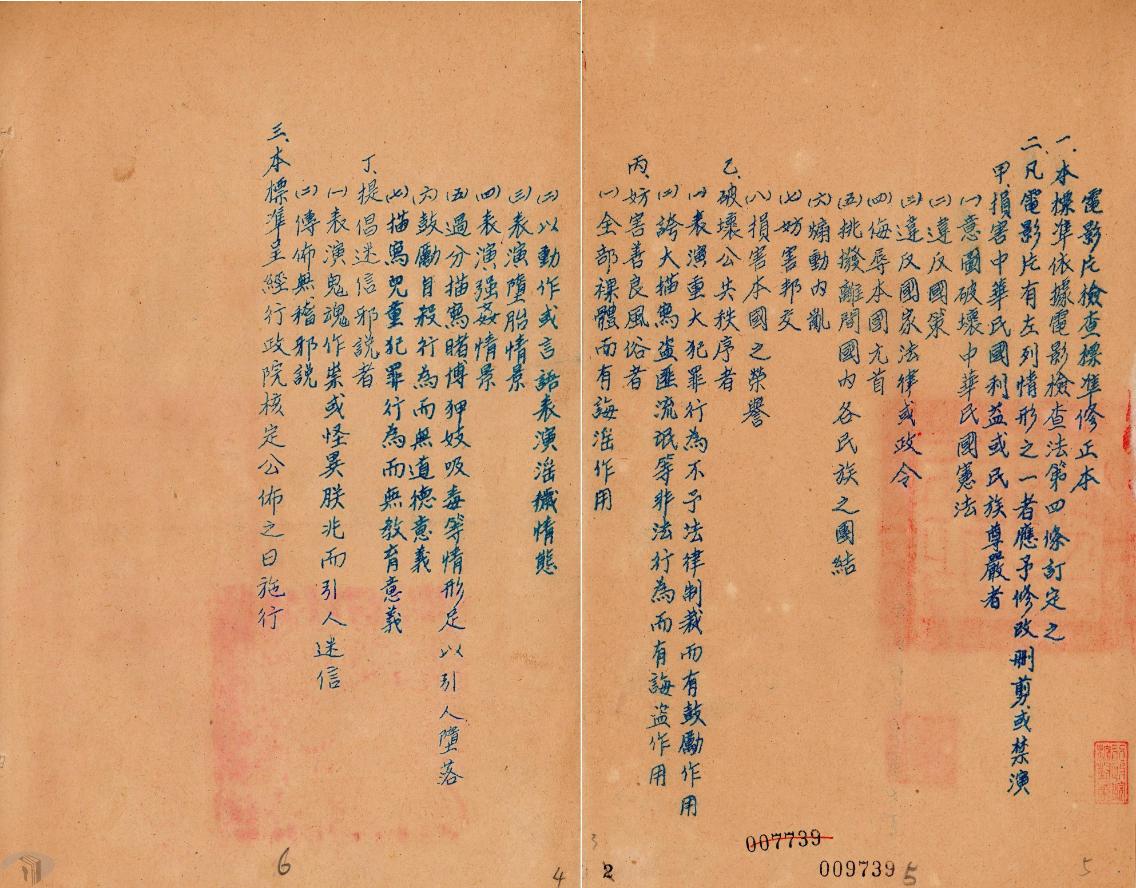 電影片檢查標準修正本
一、本標準依據電影檢查法第四條訂定之
二、凡電影片有左列情形之一者應予修改刪剪或禁演
甲、損害中華民國利益或民族尊嚴者
㈠意圖破壞中華民國憲法
㈡違反國策
㈢違反國家法律或政令
㈣侮辱本國元首
㈤挑撥離間國內各民族之團結
㈥煽動內亂
㈦妨害邦交
㈧損害本國之榮譽
乙、破壞公共秩序者
㈠表演重大犯罪行為不予法律制裁而有鼓勵作用
㈡誇大描寫盜匪流氓等非法行為而有誨盜作用
丙、妨害善良風俗者
㈠全部裸體而有誨淫作用
㈡以動作或言語表演淫穢情態
㈢表演墮胎情景
㈣表演强姦情景
㈤過分描寫賭博狎妓吸毒等情形足以引人墮落
㈥鼓勵自殺行為而無道德意義
㈦描寫兒童犯罪行為而無教育意義
丁、提倡迷信邪說者
㈠表演鬼魂作祟或怪異朕兆而引人迷信
㈡傳佈無稽邪說
三、本標準呈經行政院核定公佈之日施行
007739
009739
5
5
3
2
4
6